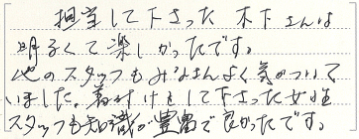 担当して下さった 木下さんは
明るくて楽しかったです。
他のスタッフもみなさんよく気がついて
いました。着付けをして下さった女性
スタッフも知識が豊富で良かったです。